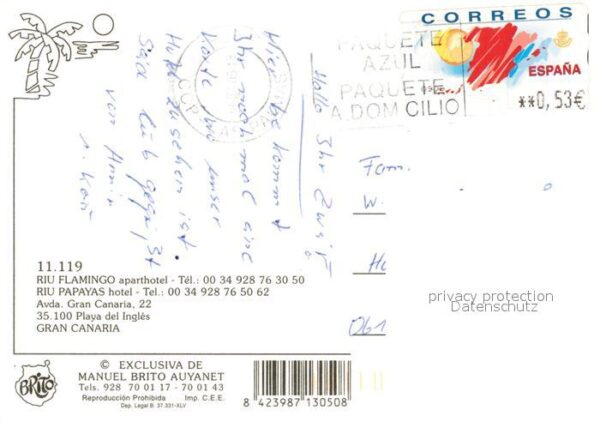 CORREOS
ESPAÑA
**0,53€
PAQUETE
AZUL
PAQUETE
A DOMICILIO
Hallo Ihr Zwei,
Hier bekommt
Ihr noch mal eine
Karte wo unser
Hotel zu sehen ist.
Seid lieb gegrüßt
von
u.
Fam.
W.
11.119
RIU FLAMINGO aparthotel - Tél.: 00 34 928 76 30 50
RIU PAPAYAS hotel - Tel.: 00 34 928 76 50 62
Avda. Gran Canaria, 22
35.100 Playa del Inglés
GRAN CANARIA
privacy protection
Datenschutz
BRITO
© EXCLUSIVA DE
MANUEL BRITO AUYANET
Tels. 928 70 01 17 - 70 01 43
Reproducción Prohibida Imp. C.E.E.
Dep. Legal B. 37.331-XLV
8 423987 130508